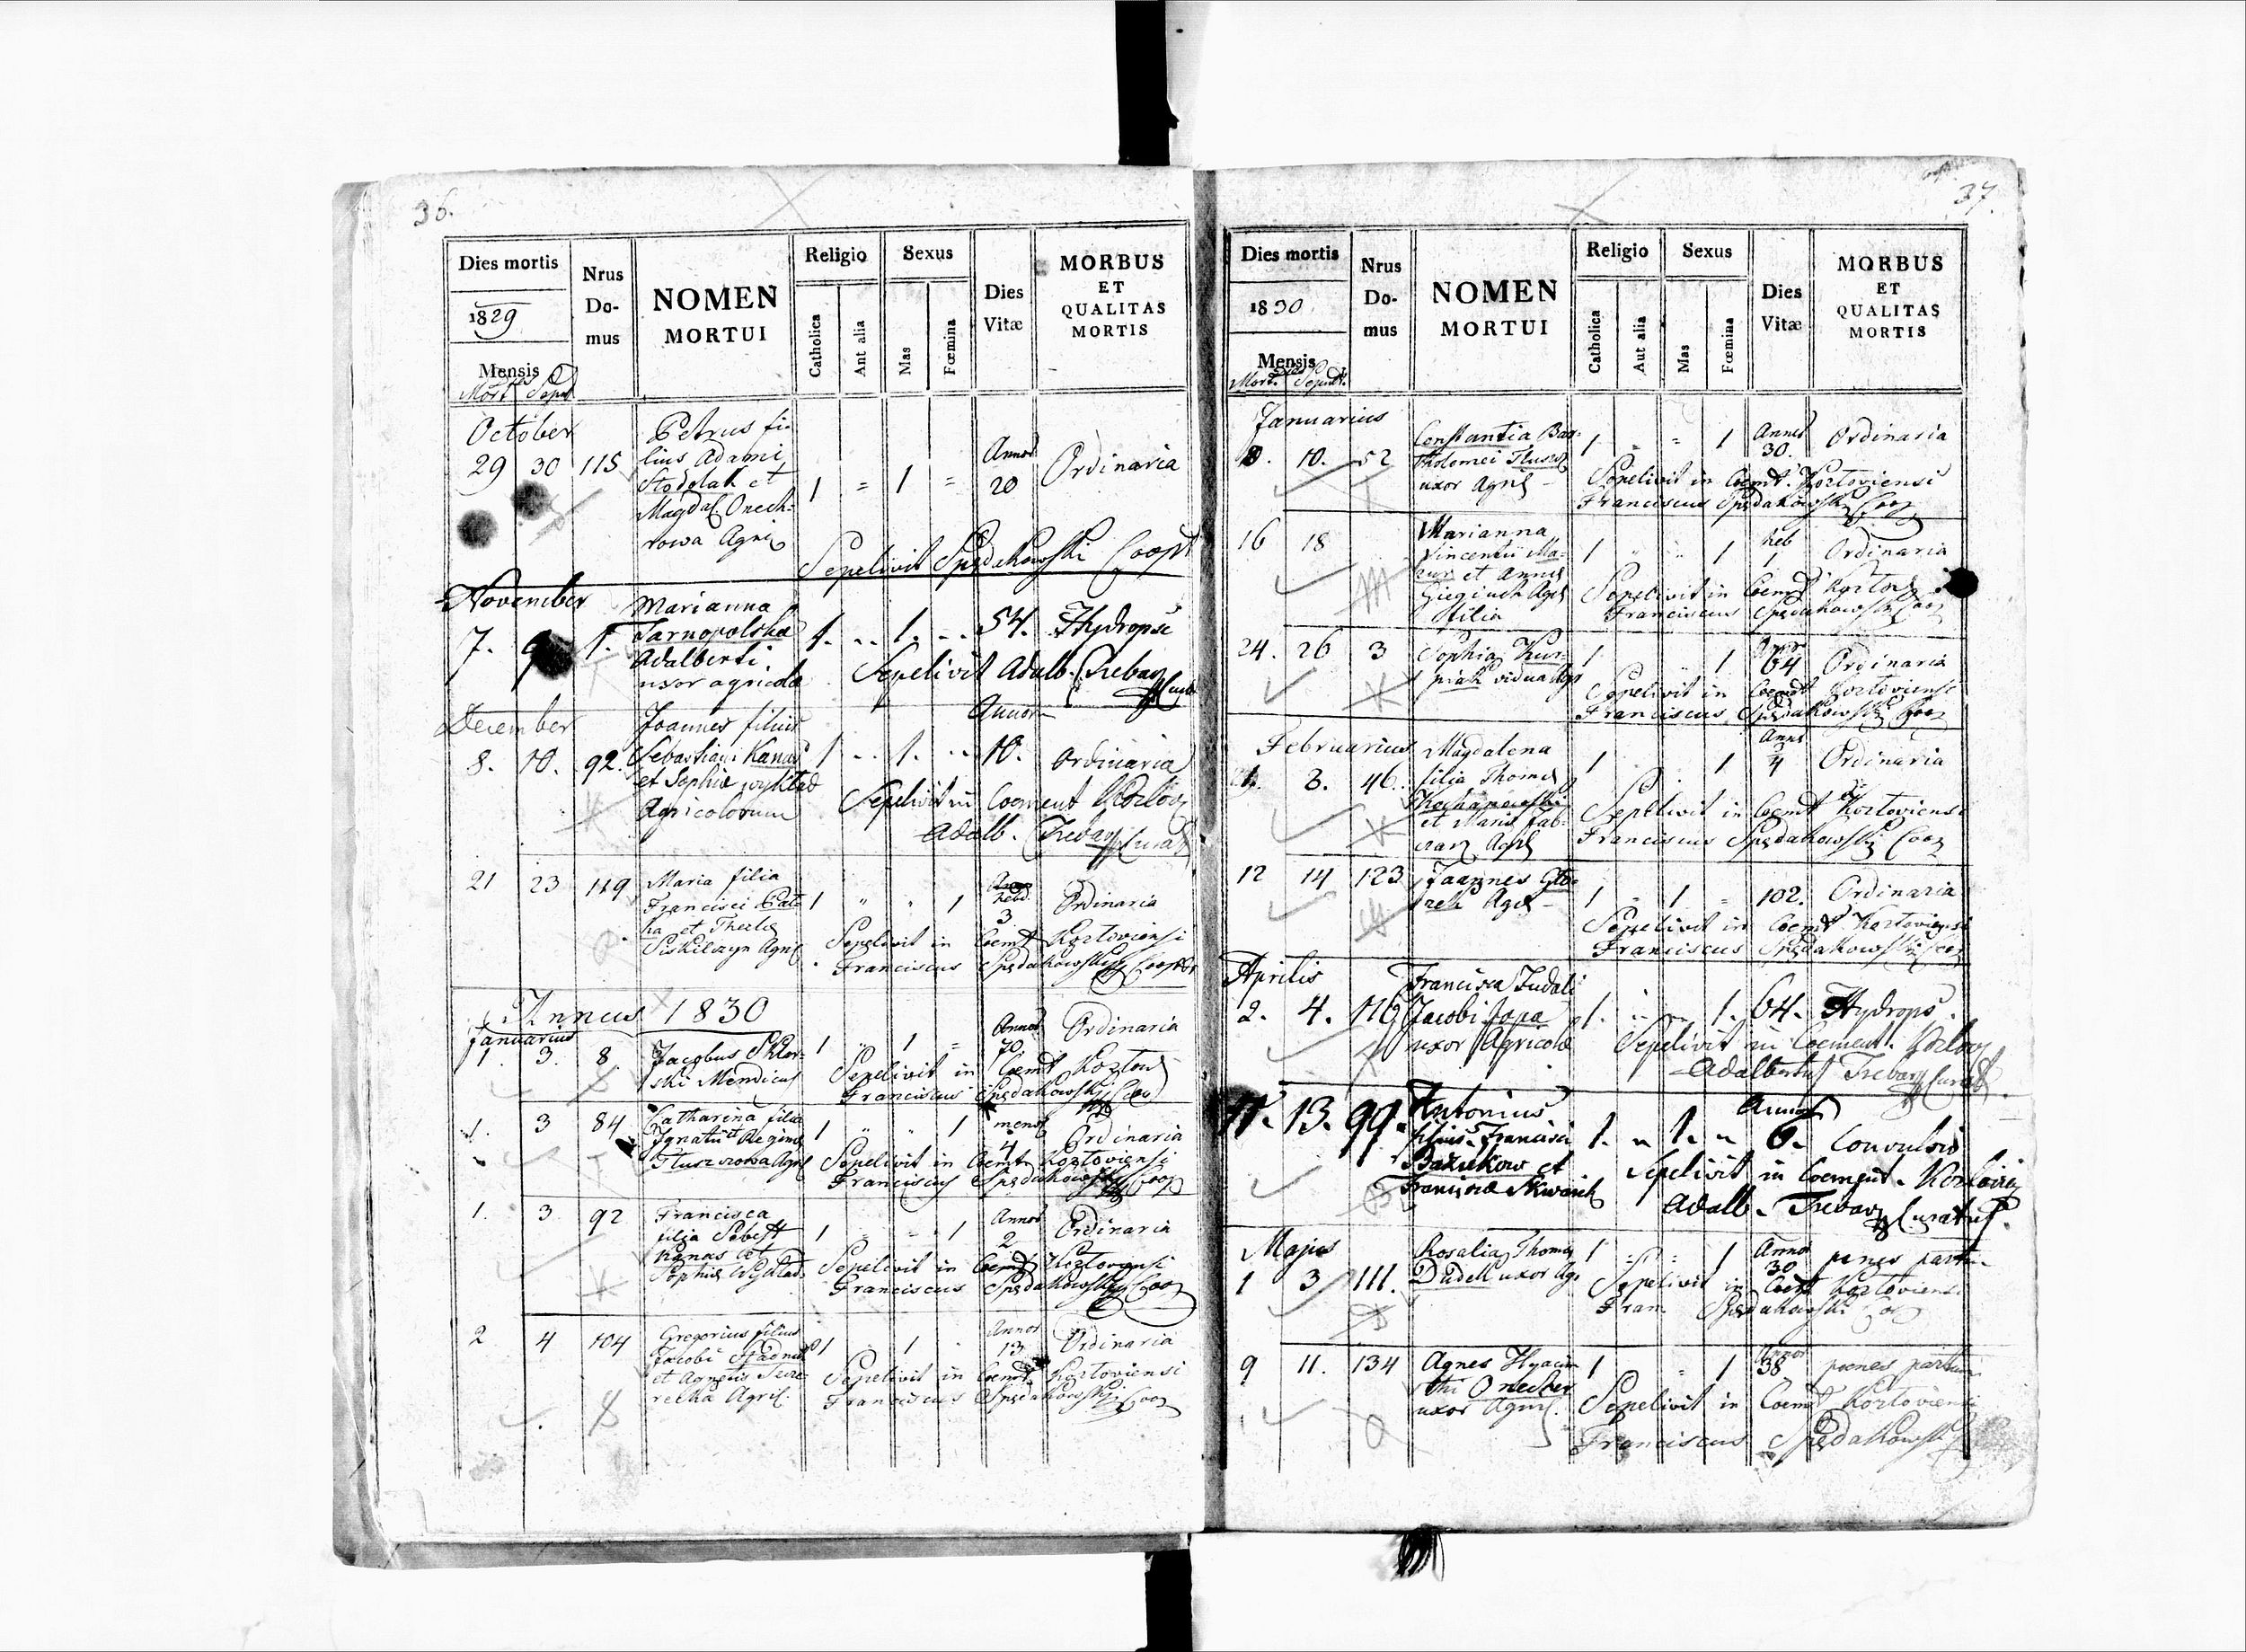 36.
Dies mortis
Nrus Do- mus
NOMEN MORTUI
Religio
Sexus
Dies Vitæ
MORBUS ET QUALITAS MORTIS
1829
Mensis
Catholica
Aut alia
Mas
Fœmina
October
29 30 115
Petrus fi-
lius Adami
Stodolak et
Magdal. Onech-
rowa Agri
1 = 1 = Annor 20 Ordinaria
Sepelivit Spędakowski Coopt
November
7. 9 1.
Marianna
Tarnopolska
Adalberti
uxor agricolæ
1. .. 1. .. 54. Hydropsi
Sepelivit Adalb. Trebacz
December
8. 10. 92.
Joannes filius
Sebastiani Kanas
et Sophiæ Wyklad
Agricolorum
1 .. 1. .. Annor 10. Ordinaria
Sepelivit in Coement Kozlov
Adalb. Trebacz Curat
21 23 119
Maria filia
Francisci
et Theclæ
1 " " 1 hebd 3 Ordinaria
Sepelivit in Coemt Kozloviensi
Franciscus Spędakowski Coopt
Annus 1830
Januarius
1. 3. 8.
Jacobus Sklar-
ski Mendicus
1 " 1 = Annor 70 Ordinaria
Sepelivit in Coemt Kozlov
Franciscus Spędakowski Coo
1. 3 84
Catharina filia
Ignatii et Reginæ
1 " " 1 mens 4 Ordinaria
Sepelivit in Coemt Kozloviensi
Franciscus Spędakowski Coop
1. 3 92
Francisca
filia Sebast
Kanas et
Sophiæ Wyklad
1 " = 1 Annor 2 Ordinaria
Sepelivit in Coemt Kozloviensi
Franciscus Spędakowski Coop
2 4 104
Gregorius filius
Jacobi
et Agnetis
Agric.
1 . 1 . Annor 13 Ordinaria
Sepelivit in Coemt Kozloviensi
Franciscus Spędakowski Coop
37.
Dies mortis
Nrus Do- mus
NOMEN MORTUI
Religio
Sexus
Dies Vitæ
MORBUS ET QUALITAS MORTIS
1830
Mensis
Catholica
Aut alia
Mas
Fœmina
Januarius
8. 10. 52
Constantia Bar-
tholomei
uxor Agric
1 " = 1 Annor 30. Ordinaria
Sepelivit in Coemt. Kozloviensi
Franciscus Spędakowski Coop
16 18
Marianna
Vincentii Ma-
zur et Annæ
filia
1 " " 1 heb 1 Ordinaria
Sepelivit in Coemt Kozlov
Franciscus Spędakowski Coop
24. 26 3
Sophia
vidua Agr
1 " 1 Annor 64 Ordinaria
Sepelivit in Coemt Kozloviensi
Franciscus Spędakowski Coop
Februarius
3. 46.
Magdalena
filia Thomæ
et Mariæ
Agric
1 1 Annor 4 Ordinaria
Sepelivit in Coemt Kozloviensi
Franciscus Spędakowski Coop
12 14 123
Joannes
Agric
1 " 1 = 102. Ordinaria
Sepelivit in Coemt Kozloviensi
Franciscus Spędakowski Coop
Aprilis
2. 4. 116
Francisca
Jacobi
uxor Agricolæ
1. .. .. 1. 64. Hydrops.
Sepelivit in Coement. Kozlov
Adalbertus Trebacz Curat
11. 13. 99.
Antonius
filius Francisci
et
Franciscæ
1. " 1. " Annor 6. Convulsio
Sepelivit in Coement. Kozlovien
Adalb. Trebacz Curatus.
Majus
1 3 111.
Rosalia Thomæ
Dudek uxor Agr
1 1 Annor 30 penes partu
Sepelivit in Coemt Kozloviensi
Fran. Spędakowski Coo
9 11. 134
Agnes Hyacin-
thi Onecher
uxor Agric.
1 " 1 Annor 38 penes partum
Sepelivit in Coemt Kozloviensi
Franciscus Spędakowski